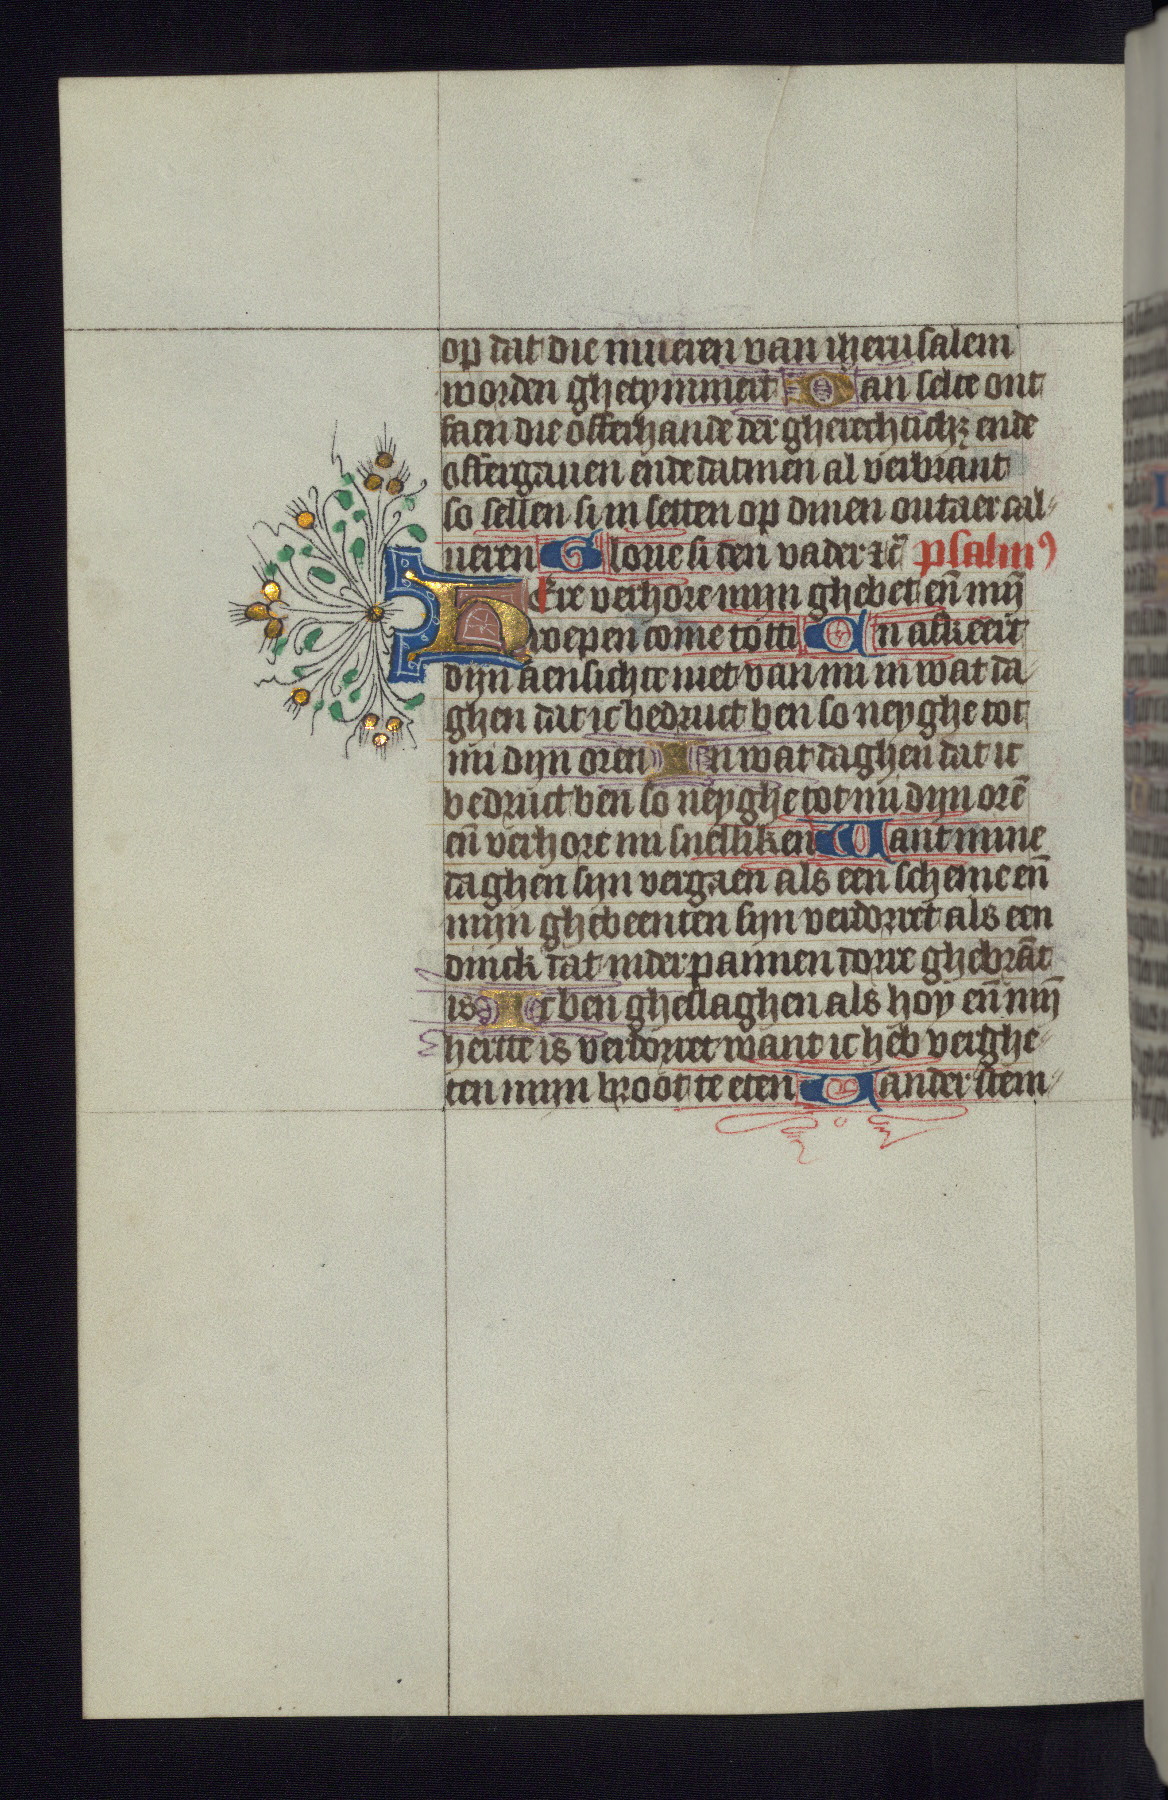 op dat die mueren van iherusalem
worden ghetymmert Dan selte ont
faen die offerhande der gherechticħz ende
offergauen ende datmen al verbrant
so sellen si in setten op dinen outaer cal⸗
ueren Glorie si den vader ⁊c̄ psalmꝰ
Here verhore mijn ghebet en̄ mij̄
roepen come totti En afkeert
dijn aensichte niet van mi in wat da
ghen dat ic bedruct ben so neyghe tot
mi dijn oren In wat daghen dat ic
bedruct ben so neyghe tot mi dijn orē
en̄ verhore mi snelliken Want mine
daghen sijn vergaen als een scheme en̄
mijn ghebeenten sijn verdorret als een
dinck dat in der pannen dorre ghebrāt
is Ic ben gheslaghen als hoy en̄ mij̄
hertte is verdorret want ic heb verghe⸗
ten mijn broot te eten Vander stem⸗